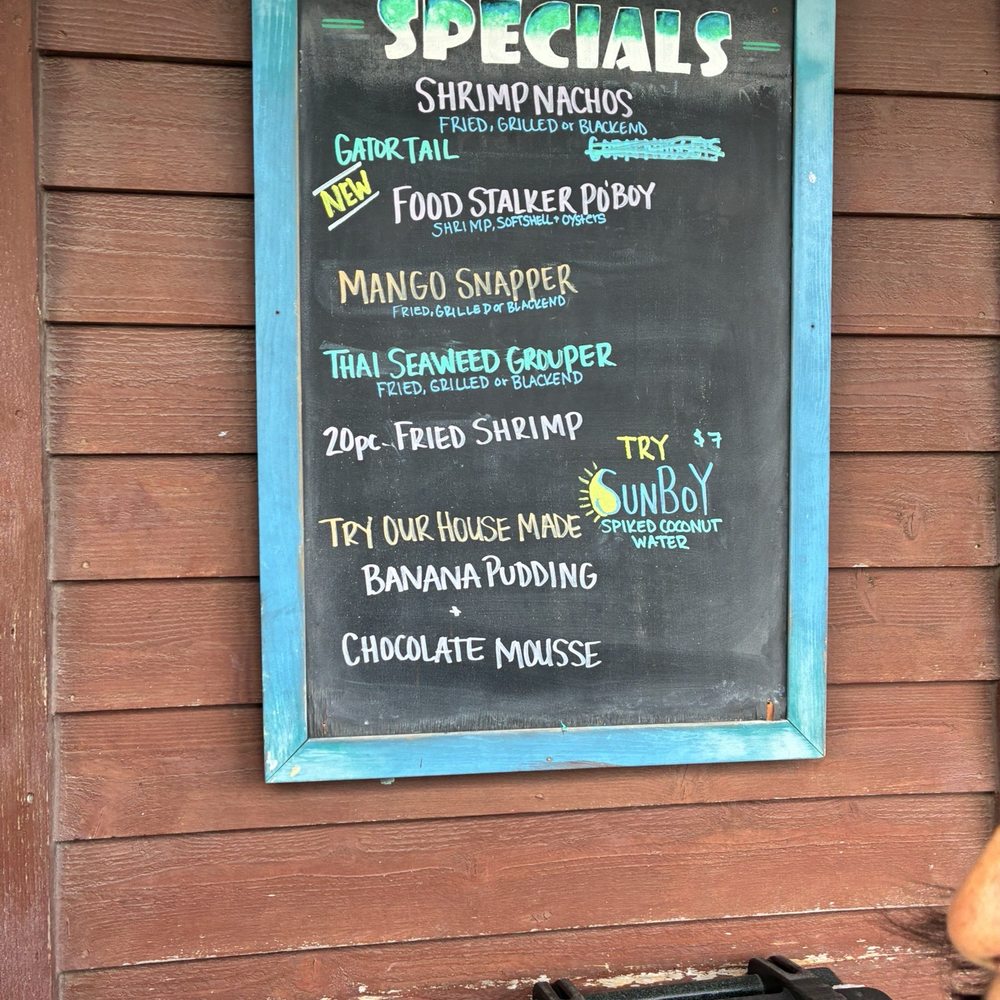 SPECIALS
SHRIMP NACHOS
FRIED, GRILLED or BLACKEND
GATOR TAIL
NEW
FOOD STALKER PO'BOY
SHRIMP, SOFTSHELL + OYSTERS
MANGO SNAPPER
FRIED, GRILLED or BLACKEND
THAI SEAWEED GROUPER
FRIED, GRILLED or BLACKEND
20pc. FRIED SHRIMP
TRY $7
SUNBOY
SPIKED COCONUT
WATER
TRY OUR HOUSE MADE
BANANA PUDDING
+
CHOCOLATE MOUSSE